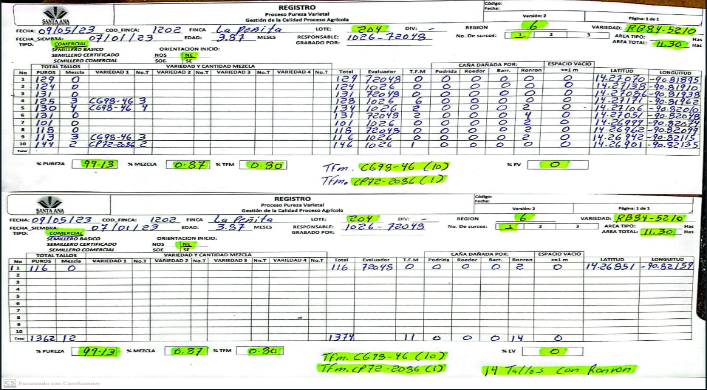 REGISTRO
Proceso Pureza Varietal
Gestión de la Calidad Proceso Agrícola
Código:
Fecha:
Versión: 2
Página: 1 de 1
SANTA ANA
FECHA: 09/05/23 COD_FINCA: 1202 FINCA La Peñita LOTE: 204 DIV: - REGION 6 VARIEDAD: RB84-5210
FECHA_SIEMBRA: 07/01/23 EDAD: 3.87 MESES RESPONSABLE: 1026-72048 No. De surcos: 1 2 3 AREA TIPO: Has
TIPO: COMERCIAL GRABADO POR: AREA TOTAL: 11.30 Has
SEMILLERO BASICO ORIENTACION INICIO:
SEMILLERO CERTIFICADO NOS NE
SEMILLERO COMERCIAL SOE SE
TOTAL TALLOS VARIEDAD Y CANTIDAD MEZCLA CAÑA DAÑADA POR: ESPACIO VACIO
No PUROS Mezcla VARIEDAD 1 No.T VARIEDAD 2 No.T VARIEDAD 3 No.T VARIEDAD 4 No.T Total Evaluador T.F.M Podrida Roedor Barr. Ronron >=1 m LATITUD LONGUITUD
1 129 0 129 72048 0 0 0 0 0 0 14.27070 -90.81895
2 124 0 124 1026 0 0 0 0 0 0 14.27138 -90.81910
3 131 0 131 72048 0 0 0 0 0 0 -90.81938
4 125 3 CG98-46 3 128 1026 6 0 0 0 0 0 14.27171 -90.81962
5 130 4 CG98-46 4 134 1026 2 0 0 0 2 0 14.27106 -90.82010
6 131 0 131 72048 2 0 0 0 4 0 14.27051 -90.82048
7 101 0 101 1026 0 0 0 0 2 0 14.26999 -90.82074
8 118 0 118 72048 0 0 0 0 2 0 14.26962 -90.82099
9 113 3 CG98-46 3 116 1026 0 0 0 0 2 0 14.26942 -90.82115
10 144 2 CP72-2086 2 146 1026 1 0 0 0 0 0 14.26901 -90.82135
Total
% PUREZA 99.13 % MEZCLA 0.87 % TFM 0.80 % EV 0
TFm. CG98-46 (10)
TFm. CP72-2086 (1)
REGISTRO
Proceso Pureza Varietal
Gestión de la Calidad Proceso Agrícola
Código:
Fecha:
Versión: 2
Página: 1 de 1
SANTA ANA
FECHA: 09/05/23 COD_FINCA: 1202 FINCA La Peñita LOTE: 204 DIV: - REGION 6 VARIEDAD: RB84-5210
FECHA_SIEMBRA: 07/01/23 EDAD: 3.87 MESES RESPONSABLE: 1026-72048 No. De surcos: 1 2 3 AREA TIPO: Has
TIPO: COMERCIAL GRABADO POR: AREA TOTAL: 11.30 Has
SEMILLERO BASICO ORIENTACION INICIO:
SEMILLERO CERTIFICADO NOS NE
SEMILLERO COMERCIAL SOE SE
TOTAL TALLOS VARIEDAD Y CANTIDAD MEZCLA CAÑA DAÑADA POR: ESPACIO VACIO
No PUROS Mezcla VARIEDAD 1 No.T VARIEDAD 2 No.T VARIEDAD 3 No.T VARIEDAD 4 No.T Total Evaluador T.F.M Podrida Roedor Barr. Ronron >=1 m LATITUD LONGUITUD
11 116 0 116 72048 0 0 0 0 2 0 14.26851 -90.82159
2
3
4
5
6
7
8
9
10
Total 1362 12 1374 11 0 0 0 14 0
% PUREZA 99.13 % MEZCLA 0.87 % TFM 0.80 % EV 0
TFm. CG98-46 (10)
TFm. CP72-2086 (1)
14 Tallos Con Ronron
Escaneado con CamScanner